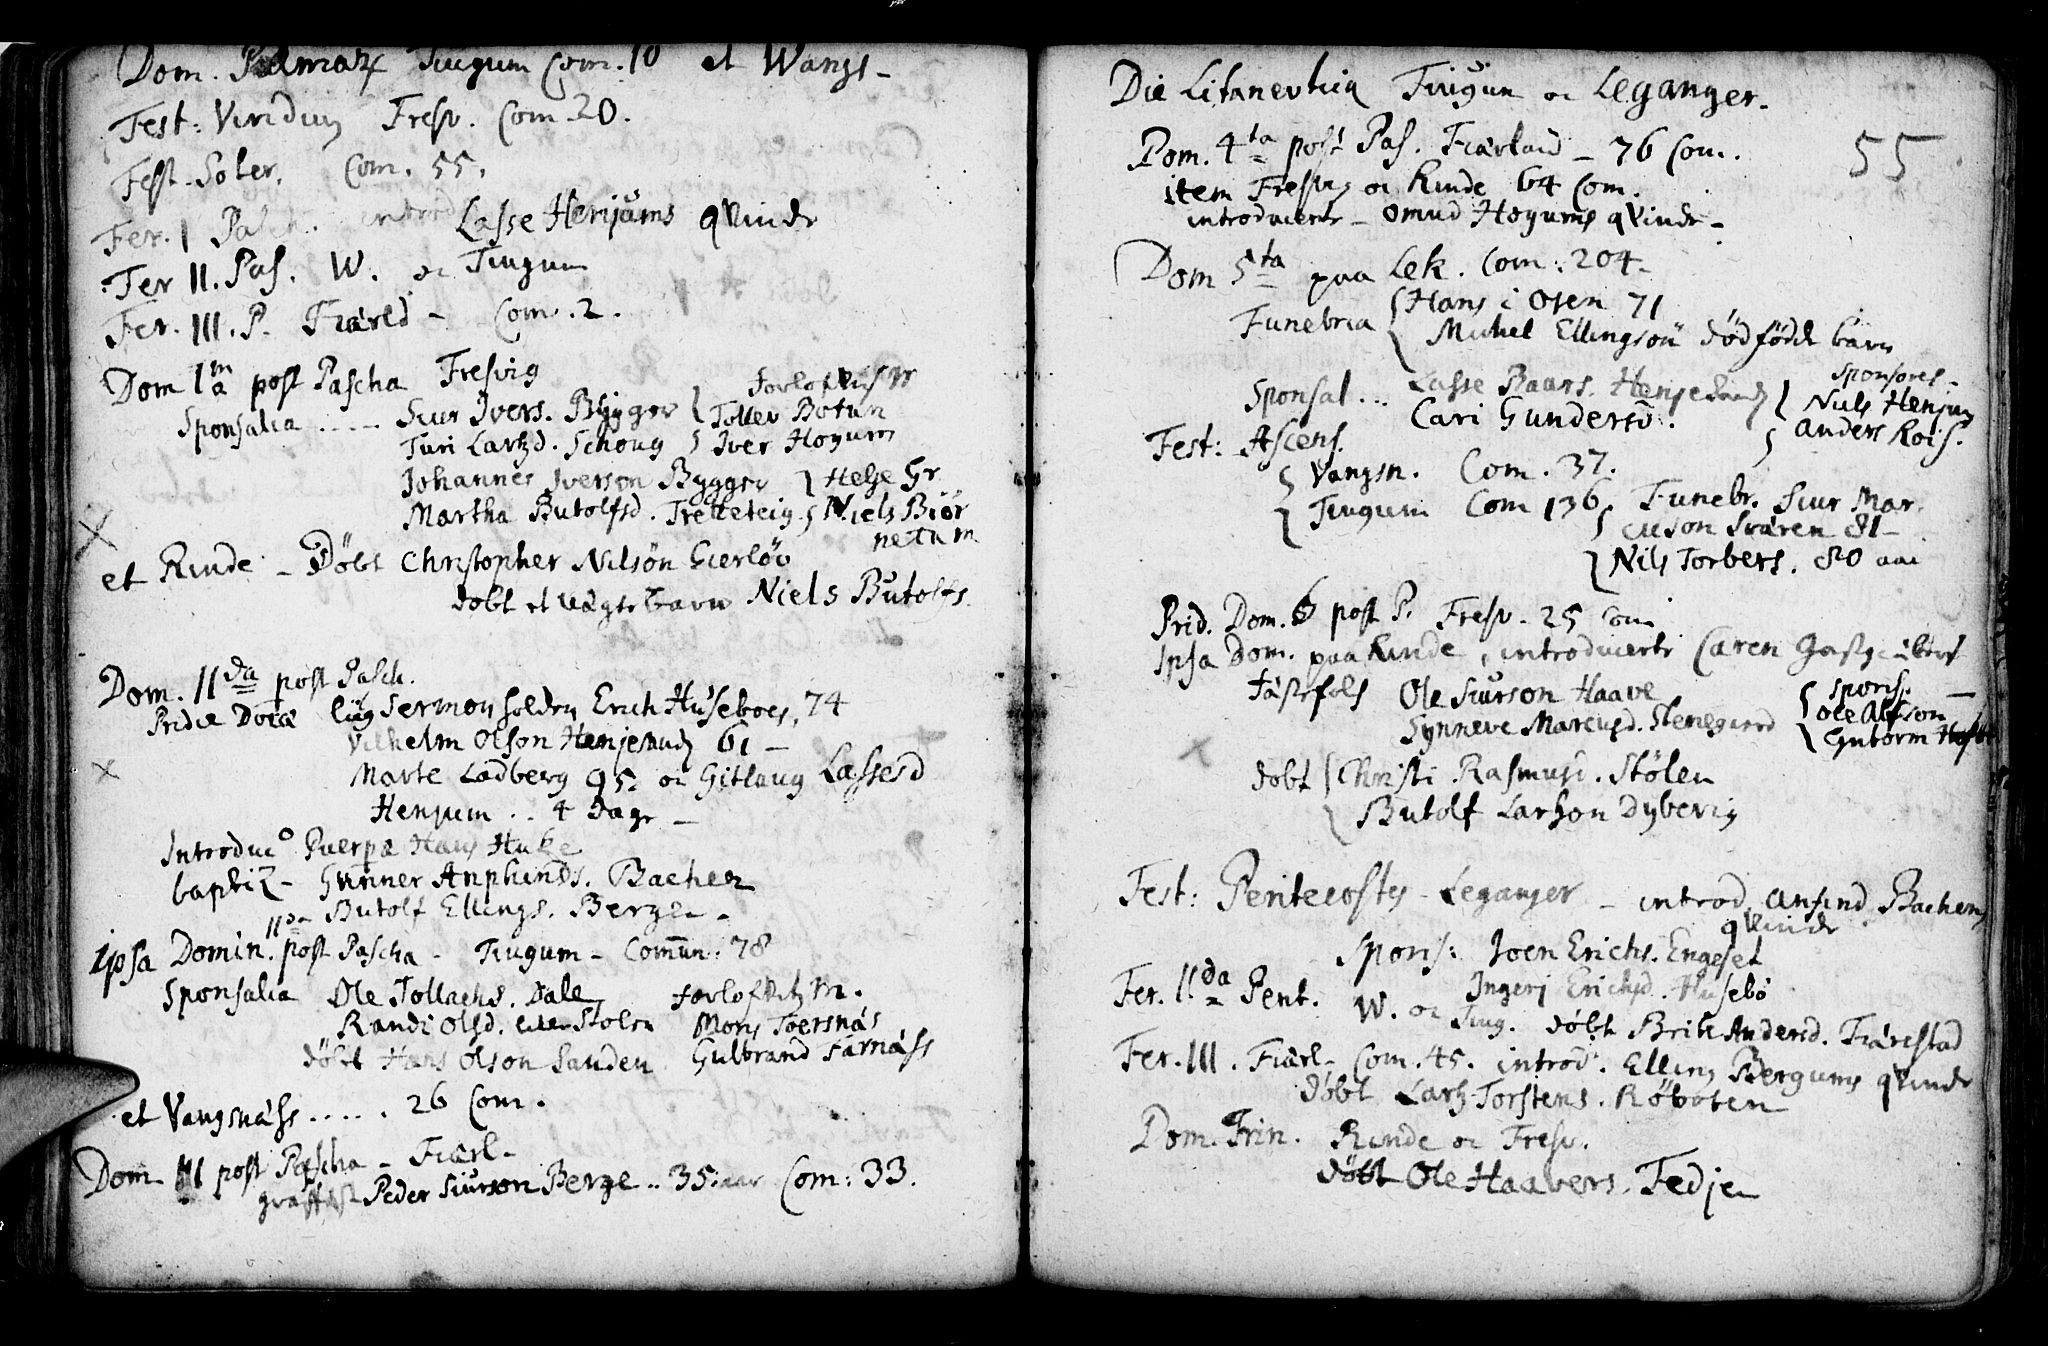 Dom. Palmar Tiugum Com. 10 et Wangs-
Fest: Viridium Fresv. Com. 20.
Fest. Soler. Com. 55.
Fer. I Pasch. introd Lasse Henjums qvinde
Fer II. Pas. W. oc Tiugum
Fer. III. P. Fiærld - Com. 2.
Dom 1ma post Pascha Fresvig
Sponsalia ..... Siur Ivers. Bygger { Toller Botun
Turi Larsd. Schoug } Iver Hogum
Johannes Iverson Bygger } Helge Gr.
Martha Butolfsd. Tretteteig } Niels Biör
netum
et Rinde - Döbt Christopher Nilsön Gierlöv
döbt et uægte barn Niels Butolfs.
Dom. IIda post Pasch.
Pridie Liig Sermon holden Erich Huseboes. 74
Vilhelm Olson Henjesand 61 -
Marte Ladberg 95. oc Gitlaug Lassesd
Henjum .. 4 dage -
Introduc° Puerpa Hans Huke
baptiz - Gunner Anphinds. Bachen
Butolf Ellings. Berge -
ipsa Domin. IIda post Pascha - Tiugum - Comun: 78
Sponsalia Ole Tollachs. Dale
Randi Olsd. Stolen Mons Toersnäs
döbt Hans Olson Sanden Gulbrand Farnäss
et Vangsnäss ..... 26 Com.
Dom III post Pascha - Fiærl -
Peder Siurson Berge .. 35 aar Com: 33.
Die Litanevtica Tiugum oc Leganger.
55
Dom. 4ta post Pas. Fiærland - 76 Com.
item Fresvig oc Rinde 64 Com.
introducerte - Omund Hogums qvinde -
Dom 5ta paa Lek. Com: 204 -
Funebria { Hans i Osen 71
Michel Ellingsön dödfödt barn
Sponsal ... Lasse Baars. Henjesand } Sponsores -
Cari Gundersd. Niels Henjum
Anders Rois.
Fest: Ascens.
{ Vangsn. Com. 37.
{ Tiugum Com 136 { Funebr. Siur Mar
cuson Svären 81 -
Nils Torbers. 80 aar
Prid. Dom. 6 post P. Fresv. 25 Com
Ipsa Dom. paa Rinde, introducerte Caren
Fästefols Ole Siurson Haave { Spons. -
Synneve Marcusd. Stenegaard { Ole Alfson
Gutorm
döbt { Christi Rasmusd. Stölen
Butolf Larson Dybevig
Fest: Pentecostes - Leganger - introd. Anfind Bachens
qvinde
Spons: Joen Erichs. Engeset
Ingeri Erichsd. Husebö
Fer. IIda Pent. W. oc Tiug. döbt Brite Andersd. Fiärestad
Fer. III. Fiärl - Com. 45. introd. Elling Bergums qvinde
döbt Lars Torstens. Röboten
Dom. Trin. Rinde oc Fresv.
döbt Ole Haavers. Tedje